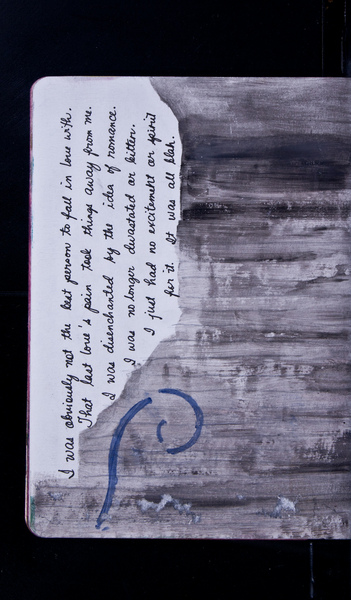 I was obviously not the best person to fall in love with.
That last love's pain took things away from me.
I was disenchanted by the idea of romance.
I was no longer devastated or bitter.
I just had no excitement or spirit
for it. It was all blah.